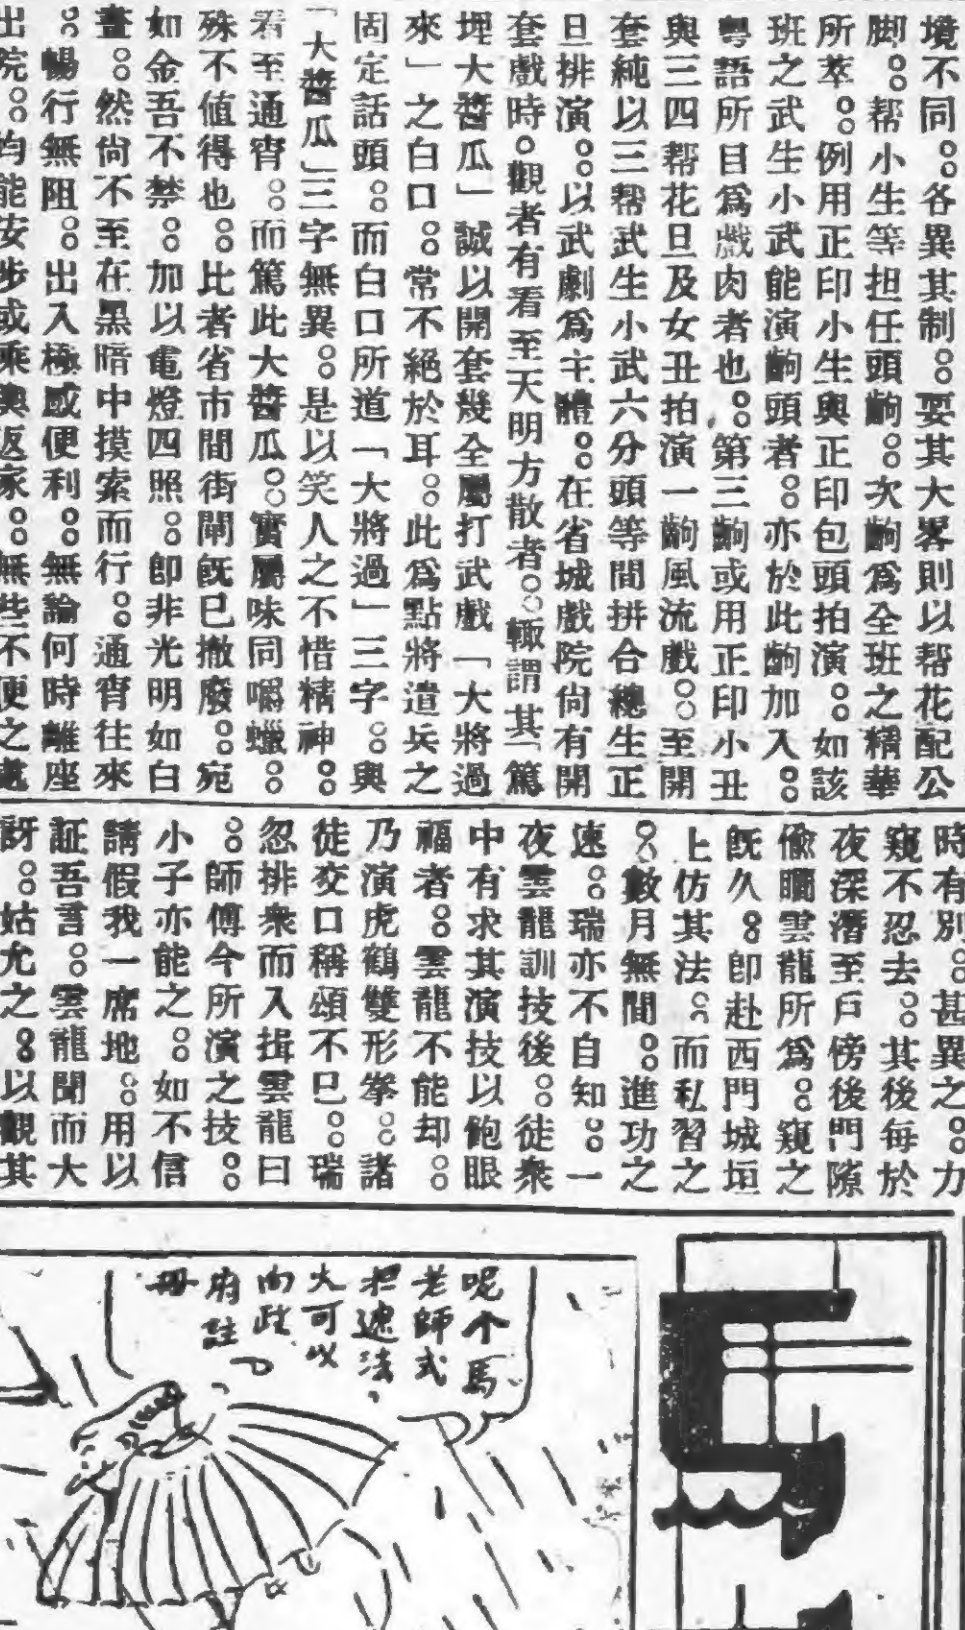 境不同。各異其制。要其大畧則以帮花配公
脚。帮小生等担任頭齣。次齣爲全班之精華
所萃。例用正印小生與正印包頭拍演。如該
班之武生小武能演齣頭者。亦於此齣加入。
粵語所目爲戲肉者也。第三齣或用正印小丑
與三四帮花旦及女丑拍演一齣風流戲。至開
套純以三帮武生小武六分頭等間拼合總生正
旦排演。以武劇爲主體。在省城戲院尙有開
套戲時。觀者有看至天明方散者。輙謂其「篤
埋大醬瓜」誠以開套幾全屬打武戲「大將過
來」之白口。常不絕於耳。此爲點將遣兵之
固定話頭。而白口所道「大將過」三字。與
「大醬瓜」三字無異。是以笑人之不惜精神。
看至通宵。而篤此大醬瓜。實屬味同嚼蠟。
殊不值得也。比者省市間街閘旣已撤廢。宛
如金吾不禁。加以電燈四照。卽非光明如白
晝。然尙不至在黑暗中摸索而行。通宵往來
。暢行無阻。出入極感便利。無論何時離座
出院。均能安步或乘輿返家。無些不便之處
時有別。甚異之。力
窺不忍去。其後每於
夜深潛至戶傍後門隙
偷瞷雲龍所爲。窺之
旣久。卽赴西門城垣
上仿其法。而私習之
。數月無間。進功之
速。瑞亦不自知。一
夜雲龍訓技後。徒衆
中有求其演技以飽眼
福者。雲龍不能却。
乃演虎鶴雙形拳。諸
徒交口稱頌不已。瑞
忽排衆而入揖雲龍曰
。師傅今所演之技。
小子亦能之。如不信
請假我一席地。用以
証吾言。雲龍聞而大
訝。姑允之。以觀其
呢个馬
老師式
把遮法，
大可以
向政
府註
冊